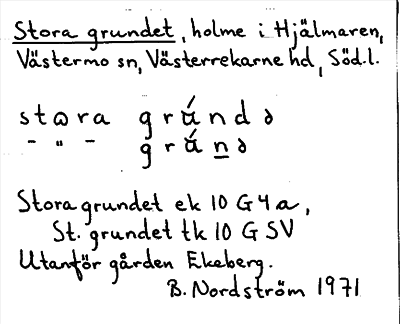 Stora grundet, holme i Hjälmaren,
Västermo sn, Västerrekarne hd, Söd.l.
stɷra grúndə
- " - grúṉə
Stora grundet ek 10 G 4 a,
St. grundet tk 10 G SV
Utanför gården Ekeberg.
B. Nordström 1971